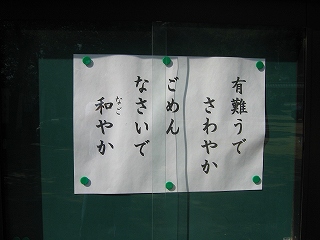 有難うで
さわやか
ごめん
なさいで
和やか
なご